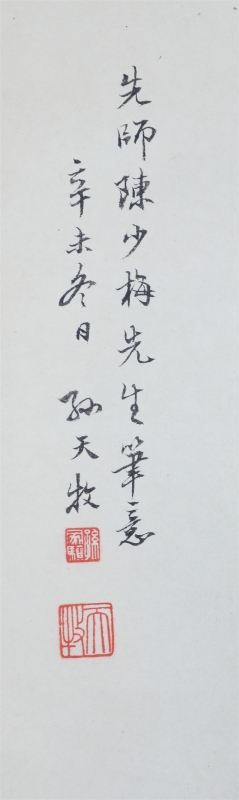 先師陳少梅先生筆意
辛未冬日 孫天牧
天牧